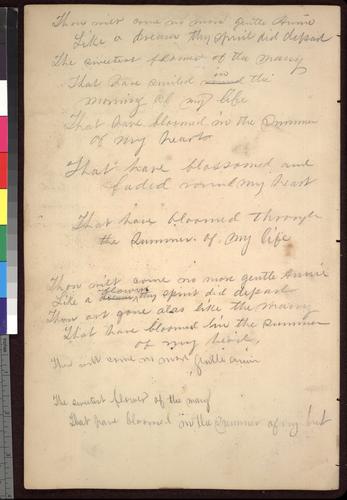 Thou wilt come no more gentle Annie
Like a dream thy spirit did depart
The sweetest flower of the many
That have smiled in the
morning of my life
That have bloomed in the summer
of my heart
That have blossomed and
faded round my heart
That have bloomed through
the summer of my life
Thou wilt come no more gentle Annie
Like a flower thy spirit did depart
Thou art gone alas like the many
That have bloomed in the summer
of my heart,
Thou wilt come no more gentle Annie
The sweetest flower of the many
That have bloomed in the summer of my